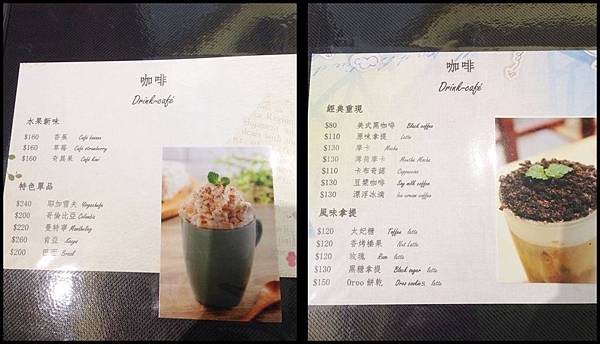 咖啡
Drink-café
水果新味
$160 香蕉 Cafe banana
$160 草莓 Cafe strawberry
$160 奇異果 Cafe kiwi
特色單品
$240 耶加雪夫
$200 哥倫比亞 Colombia
$220 曼特寧
$260 肯亞
$200 巴西 Brazil
咖啡
Drink-café
經典重現
$80 美式黑咖啡 Black coffee
$110 原味拿提 Latte
$130 摩卡 Mocha
$130 薄荷摩卡 Mocha
$110 卡布奇諾 Cappuccino
$130 豆漿咖啡 Soy milk coffee
$130 漂浮冰滴 Ice cream coffee
風味拿提
$120 太妃糖 Toffee latte
$120 香烤榛果 Nut Latte
$120 玫瑰 latte
$130 黑糖拿提 Black sugar latte
$150 Oreo 餅乾 Oreo cookies latte